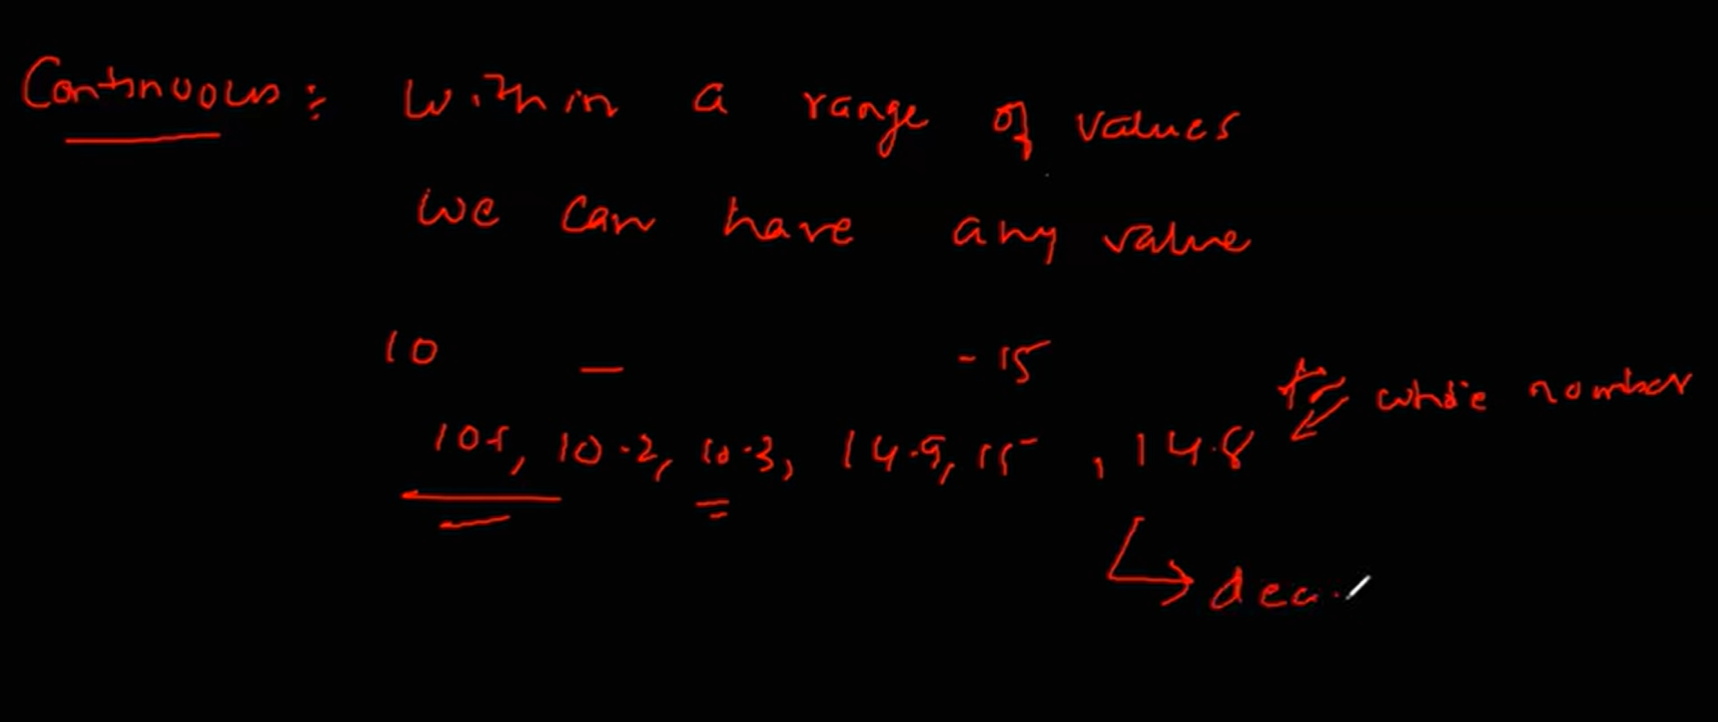 Continuous : within a range of values
we can have any value
10 — - 15
10.1, 10.2, 10.3, 14.9, 15 , 14.8 whole number
deci